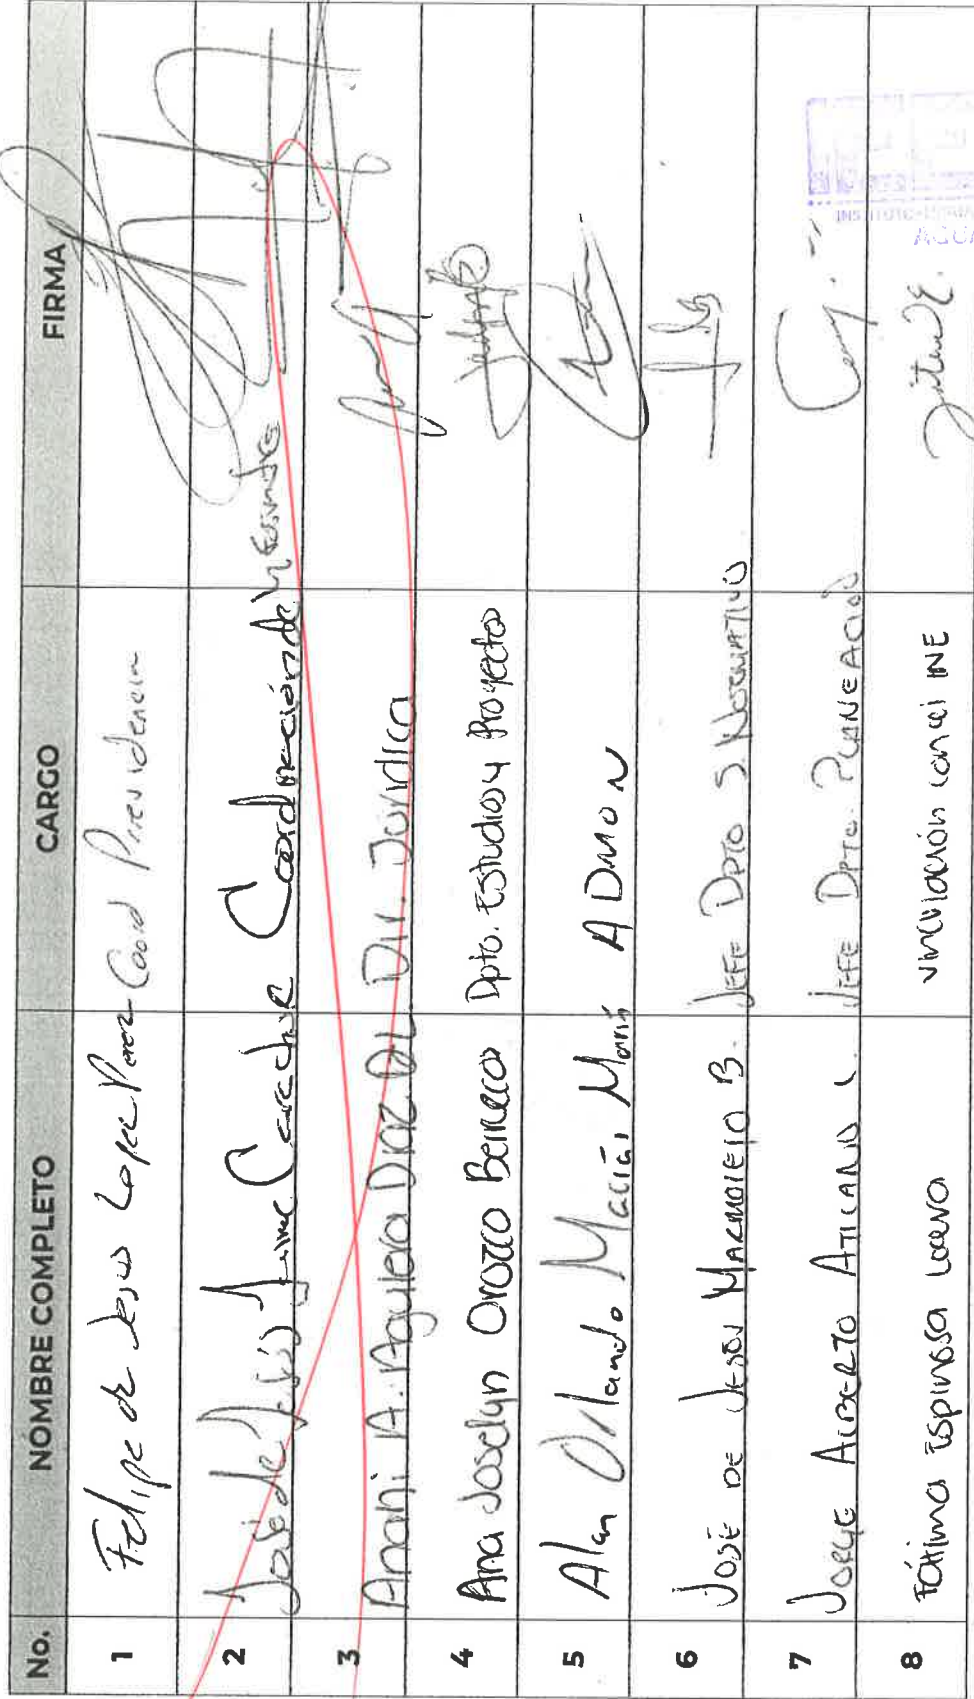 No. NOMBRE COMPLETO CARGO FIRMA
1 Felipe de Jesus Lopez Perez Coord Presidencia
2 José de Jesús Jaime Coordinación de
3 Anani A. Aguilera Diaz Dir. Juridica
4 Ana Joselyn Orozco Dpto. Estudios y Proyectos
5 Alan Orlando Macías Marís ADMON
6 JOSÉ DE JESUS MARMOLEJO B. JEFE DPTO S. NORMATIVO
7 JORGE ALBERTO ATILANO L. JEFE DPTO. PLANEACION
8 Fátima Espinosa vinculación con el INE